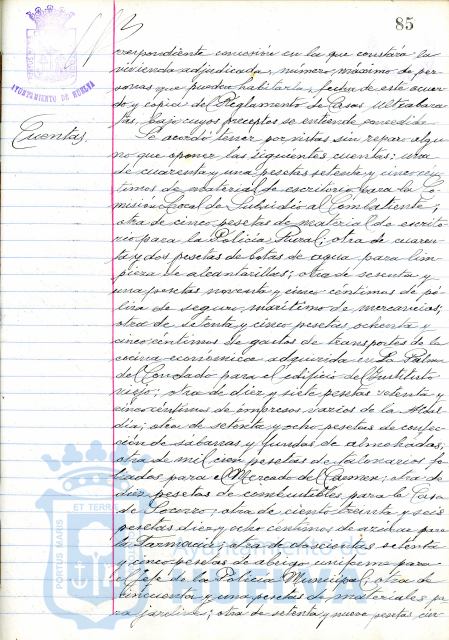 85
AYUNTAMIENTO DE HUELVA
respondiente concesión en la que constará la
vivienda adjudicada, número máximo de per
sonas que pueden habitarla, fecha de este acuer
do y copia del Reglamento de Casas Ultrabara
tas, bajo cuyos preceptos se entiende concedida
Cuentas.
Se acordó tener por vistas sin reparo algu
no que oponer las siguientes cuentas: una
de cuarenta y una pesetas setenta y cinco cén
timos de material de escritorio para la Co
misión Local de Subsidio al Combatiente;
otra de cinco pesetas de material de escrito
rio para la Policía Rural; otra de cuaren
ta y dos pesetas de botas de agua para lim
pieza de alcantarillas; otra de sesenta y
una pesetas noventa y cinco céntimos de pó
liza de seguro marítimo de mercancías;
otra de setenta y cinco pesetas ochenta y
cinco céntimos de gastos de transportes de la
cocina económica adquirida en La Palma
del Condado para el edificio del Instituto
viejo; otra de diez y siete pesetas setenta y
cinco céntimos de impresos varios de la Alcal
día; otra de setenta y ocho pesetas de confec
ción de sábanas y fundas de almohadas;
otra de mil cien pesetas de talonarios fo
liados para el Mercado del Carmen; otra de
diez pesetas de combustibles para la Casa
de Socorro; otra de ciento treinta y seis
pesetas diez y ocho céntimos de azúcar para
la Farmacia; otra de doscientas setenta
y cinco pesetas de abrigo uniforme para
el Jefe de la Policía Municipal; otra de
cincuenta y una pesetas de materiales pa
ra jardines; otra de setenta y nueve pesetas cin-
PORTUS MARIS ET TERRAE
Ayuntamiento de
HUELVA